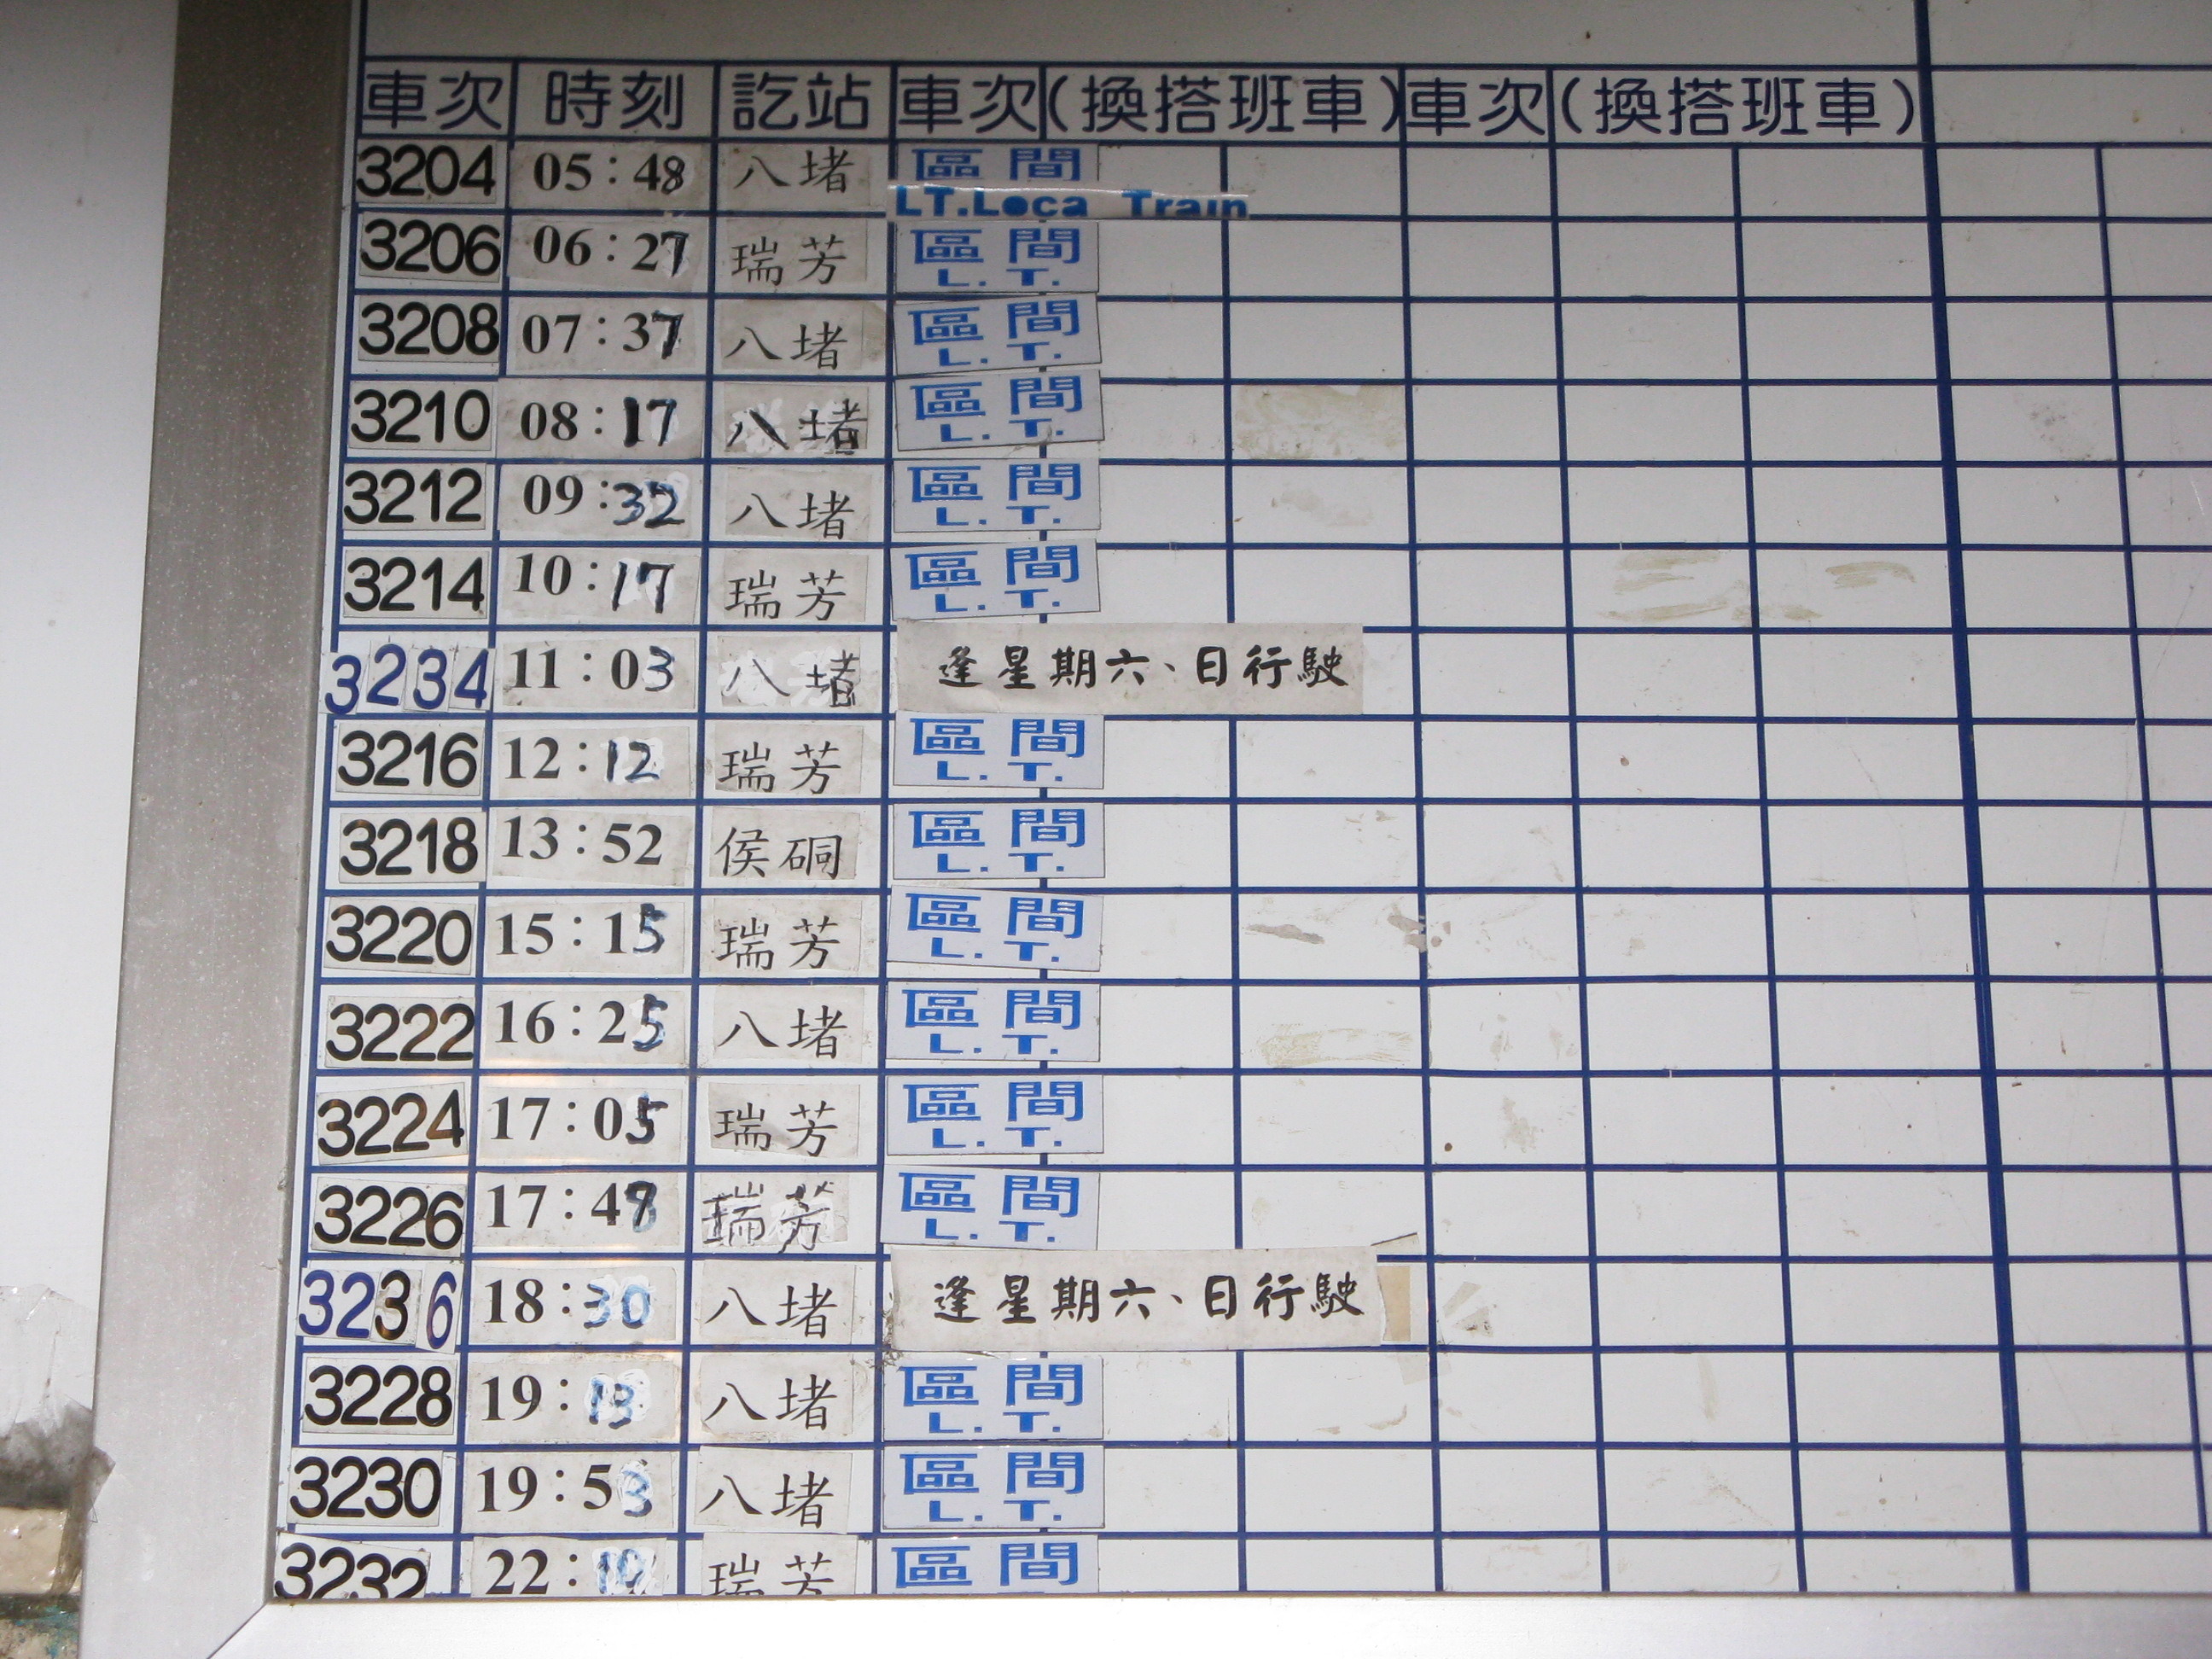 車次 時刻 訖站 車次 (換搭班車) 車次 (換搭班車)
3204 05:48 八堵 區間
LT.Loca Train
3206 06:27 瑞芳 區間 L.T.
3208 07:37 八堵 區間 L.T.
3210 08:17 八堵 區間 L.T.
3212 09:32 八堵 區間 L.T.
3214 10:17 瑞芳 區間 L.T.
3234 11:03 八堵 逢星期六、日行駛
3216 12:12 瑞芳 區間 L.T.
3218 13:52 侯硐 區間 L.T.
3220 15:15 瑞芳 區間 L.T.
3222 16:25 八堵 區間 L.T.
3224 17:05 瑞芳 區間 L.T.
3226 瑞芳 區間 L.T.
3236 18:30 八堵 逢星期六、日行駛
3228 八堵 區間 L.T.
3230 19:53 八堵 區間 L.T.
3232 瑞芳 區間